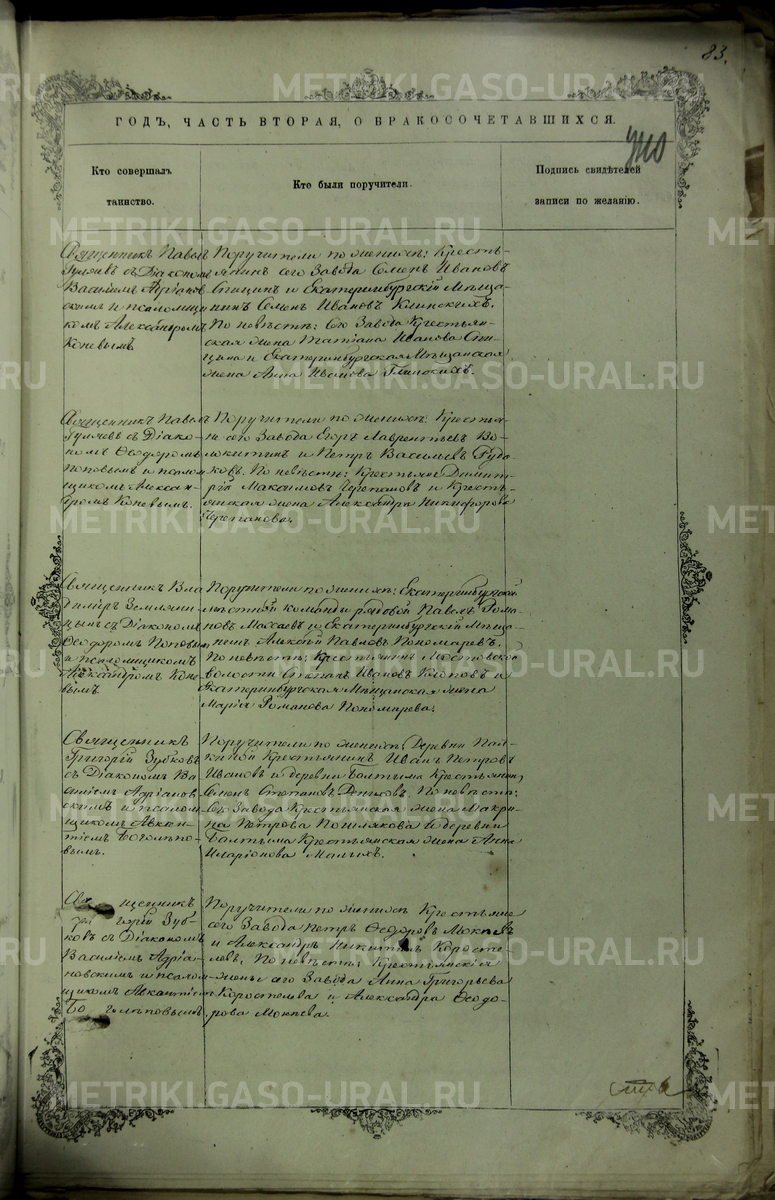 83.
ГОДЪ, ЧАСТЬ ВТОРАЯ, О БРАКОСОЧЕТАВШИХСЯ.
Кто совершалъ
таинство.
Кто были поручители.
Подпись свидѣтелей
записи по желанію.
Священникъ Павелъ
съ Діакономъ
Василіемъ Адріанов
скимъ и псаломщи
комъ Александромъ
Коневымъ
Поручители по женихѣ: Кресть-
янинъ сего Завода Семенъ Ивановъ
Спицинъ и Екатеринбургскій Мѣща
нинъ Семенъ Ивановъ Климскихъ.
По невѣстѣ: Сего Завода Крестьян-
ская жена Татіана Иванова Спи-
цина и Екатеринбургская Мѣщанская
жена Анна Иванова
Священникъ Павелъ
съ Діако-
номъ Ѳеодоромъ
Поповымъ и псалом
щикомъ Алексан-
дромъ Коневымъ.
Поручители по женихѣ: Крестья-
не сего Завода Егоръ Лаврентьевъ Во-
локитинъ и Петръ Васильевъ Руда
ковъ. По невѣстѣ: Крестьяне Димит-
рій Максимовъ Черепановъ и Кресть-
янская жена Александра Никифорова
Черепанова.
Священникъ Вла
диміръ Землянин
цынъ съ Діакономъ
Ѳеодоромъ Поповым
и псаломщикомъ
Александромъ Коне
вымъ
Поручители по женихѣ: Екатеринбургской
мѣстной команды рядовой Павелъ Рома
новъ и Екатеринбургскій Мѣща-
нинъ Алексѣй Павловъ Пономаревъ.
По невѣстѣ: Крестьянинъ
волости Степанъ Ивановъ Клоповъ и
Екатеринбургская Мѣщанская жена
Марія Романова Пономарева.
Священникъ
Григорій Зубковъ
съ Діакономъ Ва
силіемъ Адріанов-
скимъ и псалом
щикомъ Авксен-
тіемъ Боголѣпо-
вымъ.
Поручители по женихѣ: Деревни Пал-
киной Крестьянинъ Иванъ Петровъ
Ивановъ и деревни Балтыма Крестьянин
Семенъ Степановъ По невѣстѣ:
Сего Завода Крестьянская жена Макри-
на Петрова Пошлякова и деревни
Балтыма Крестьянская жена Анна
Иларіонова Малыхъ.
Священникъ
Григорій Зуб-
ковъ съ Діакономъ
Василіемъ Адріа-
новскимъ и псалом
щикомъ Авксентіемъ
Боголѣповымъ
Поручители по женихѣ Крестьяне
сего Завода Петръ Ѳеодоровъ
и Александръ Никитинъ Коросте-
левъ; По невѣстѣ: Крестьянскія
жены сего Завода Анна Григорьева
Коростелева и Александра Ѳеодо-
рова
METRIKI.GASO-URAL.RU